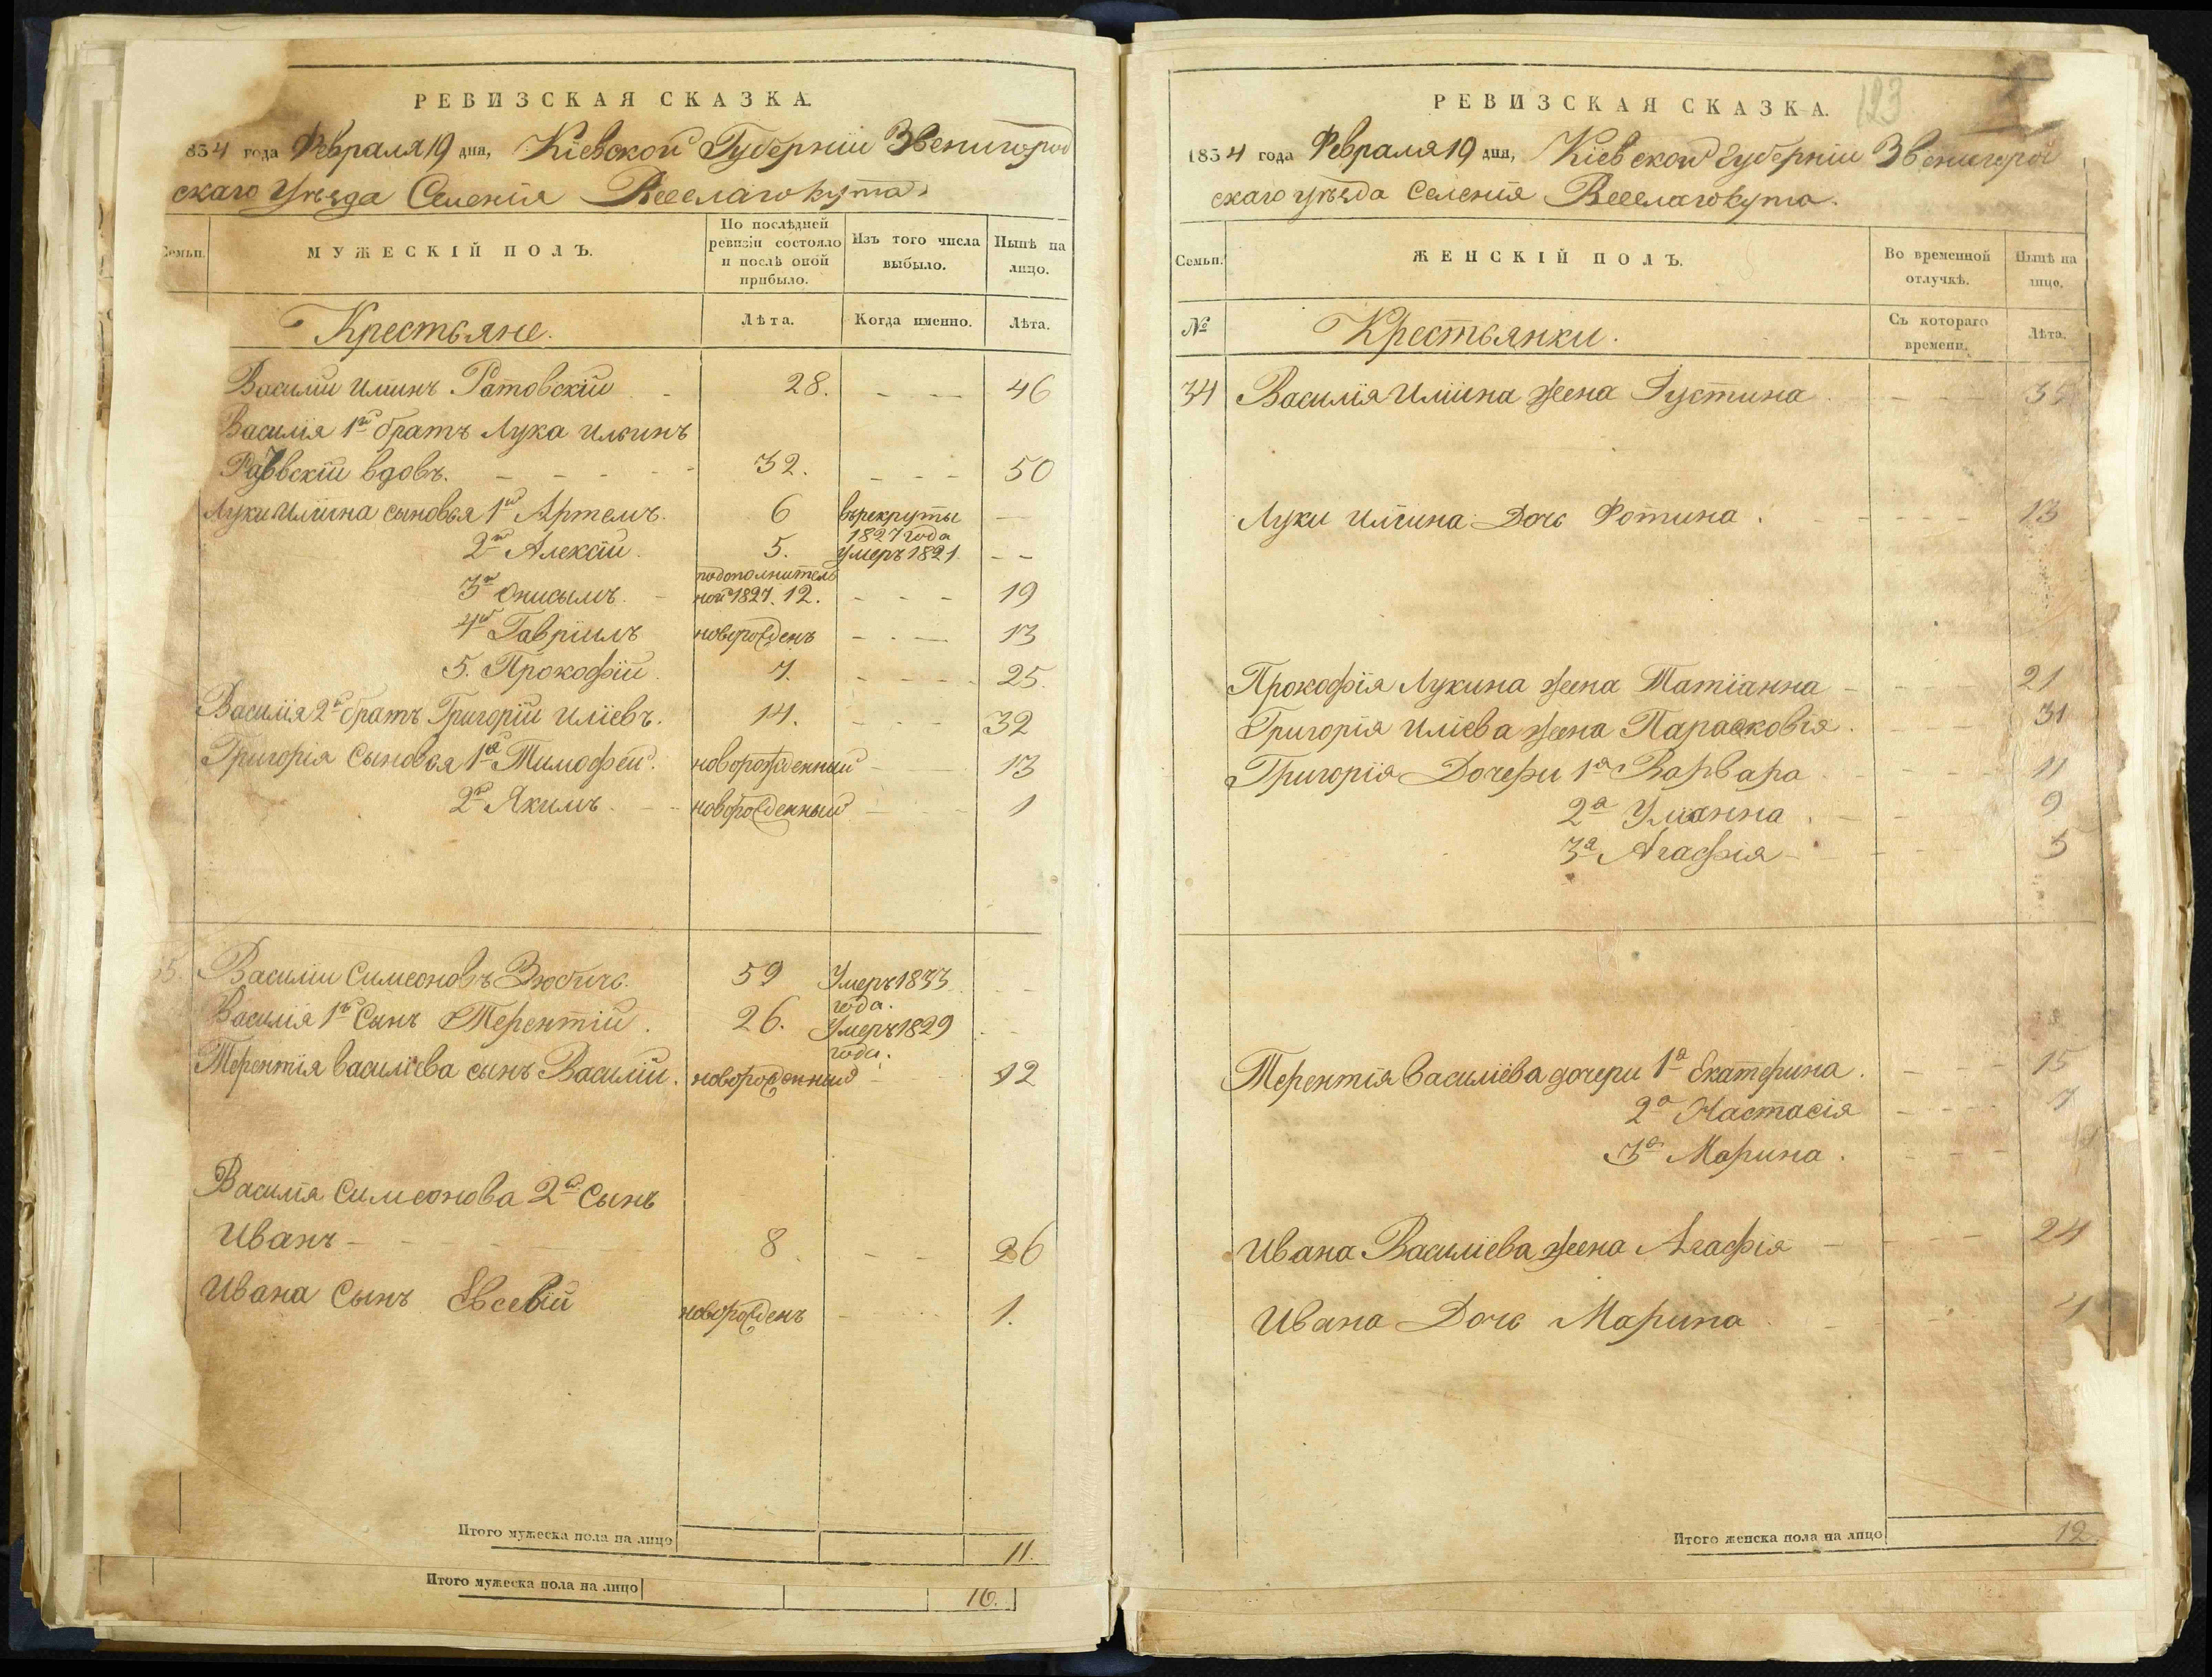 РЕВИЗСКАЯ СКАЗКА.
834 года Февраля 19 дня, Кіевской Губерніи Звенигород
скаго Уѣзда Селенія Веселагокута.
Семьи.
МУЖЕСКІЙ ПОЛЪ.
По послѣдней ревизіи состояло и послѣ оной прибыло.
Изъ того числа выбыло.
Нынѣ на лицо.
Крестьяне.
Лѣта.
Когда именно.
Лѣта.
Василій Илiинъ Ратовскій - 28. - - - 46
Василія 1й братъ Лука Ильинъ
вдовъ. - - - - - 32. - - - 50
Луки Илiина сыновья 1й Артемъ. 6 въ рекруты 1827 года -
2й Алексій. 5. умеръ 1821. - -
3й Онисимъ. - подополнитель ной 1827. 12. - - - 19
4й Гавріилъ новорожденъ - - - 13
5. Прокофій. 7. - - - - 25.
Василія 2й братъ Григорій Иліевъ. 14. - - - 32
Григорія Сыновья 1й Тимофей. новорожденный - - 13
2й Якимъ. - - новорожденный - - - 1
5. Василій Симеоновъ Зюбичь. 59 Умеръ 1833 года. - -
Василія 1й Сынъ Терентій. 26. Умеръ 1829 года. - -
Терентія Василіева сынъ Василій. новорожденный - - 12
Василія Симеонова 2й Сынъ
Иванъ - - - - 8. - - - 26
Ивана Сынъ Евсевій новорожденъ - - - 1.
Итого мужеска пола на лицо 11.
Итого мужеска пола на лицо 16.
123
РЕВИЗСКАЯ СКАЗКА.
1834 года Февраля 19 дня, Кіевской Губерніи Звенигород
скаго уѣзда Селенія Веселагокута.
Семьи.
ЖЕНСКІЙ ПОЛЪ.
Во временной отлучкѣ.
Нынѣ на лицо.
№
Крестьянки.
Съ котораго времени.
Лѣта.
34 Василія Илiина жена Густина. - - - 35
Луки Илiина Дочь Фотина. - - - - - 13
Прокофія Лукина жена Татіанна - - - - 21
Григорія Иліева жена Парасковія. - - - 31
Григорія Дочери 1я Варвара. - - - - 11
2я Уліанна. - - 9
3я Агафія - - - - 5
Терентія Василіева дочери 1я Екатерина. - - - 15
2я Настасія - - - -
3я Марина. - - -
Ивана Василіева жена Агафія - - - - 24
Ивана Дочь Марина. - - - - 4
Итого женска пола на лицо 12.